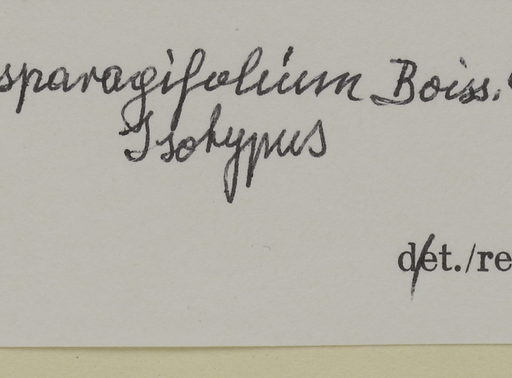 sparagifolium Boiss.
Isotypus
det./re